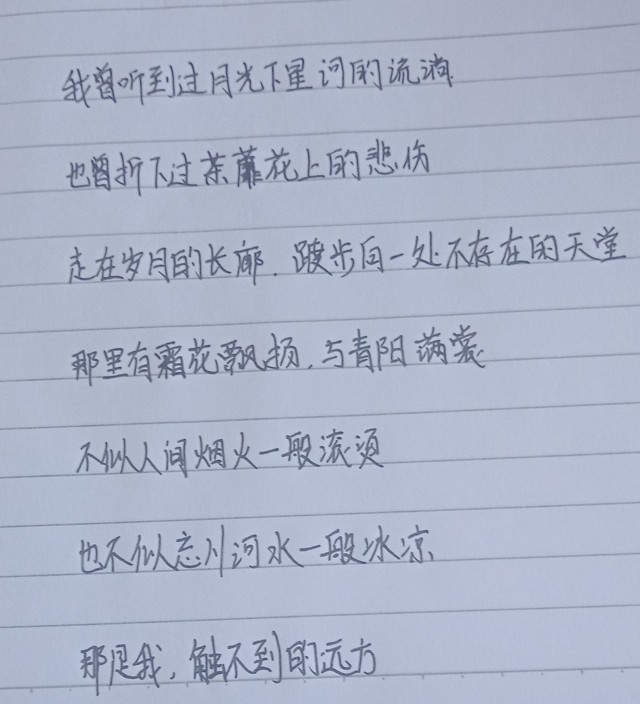 我曾听到过月光下星河的流淌
也曾折下过荼蘼花上的悲伤
走在岁月的长廊，踱步向一处不存在的天堂
那里有霜花飘扬，与青阳满裳
不似人间烟火一般滚烫
也不似忘川河水一般冰凉
那是我，触不到的远方